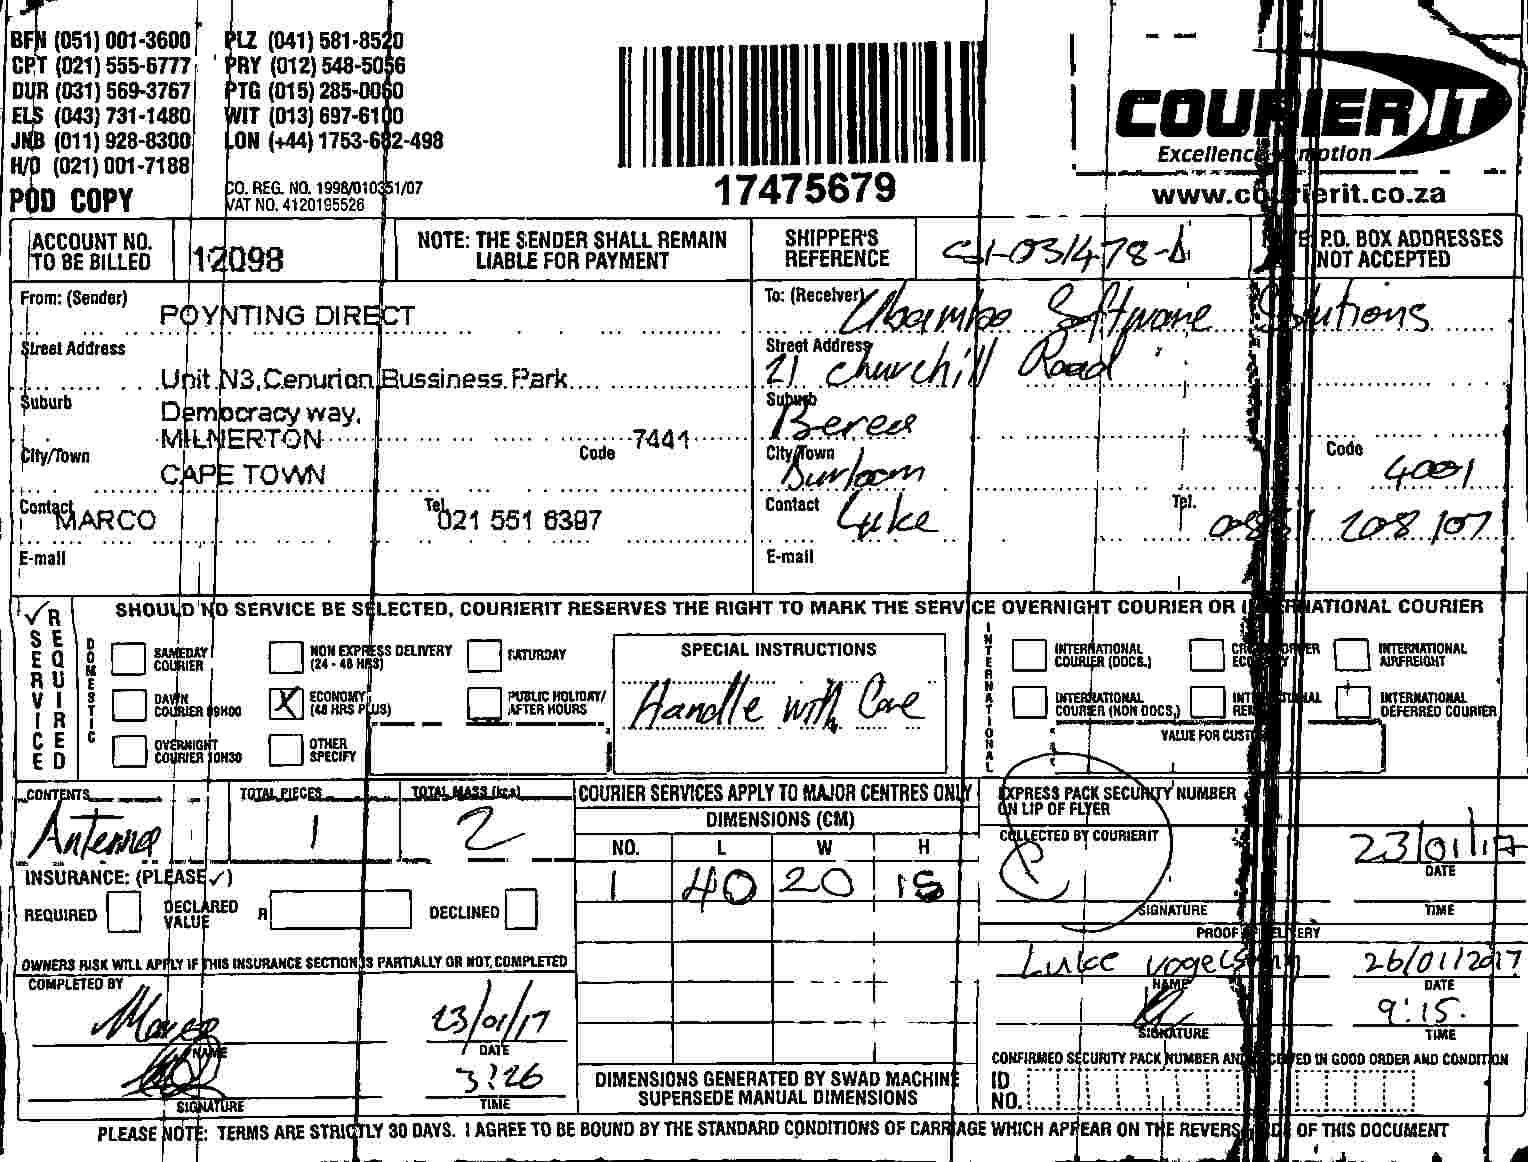 BFN (051) 001-3600 PLZ (041) 581-8520
CPT (021) 555-6777 PRY (012) 548-5056
DUR (031) 569-3767 PTG (015) 285-0060
ELS (043) 731-1480 WIT (013) 697-6100
JNB (011) 928-8300 LON (+44) 1753-682-498
H/O (021) 001-7188
POD COPY
CO. REG. NO. 1998/010351/07
VAT NO. 4120195526
17475679
COURIER IT
www.courierit.co.za
ACCOUNT NO. TO BE BILLED 12098
NOTE: THE SENDER SHALL REMAIN LIABLE FOR PAYMENT
SHIPPER'S REFERENCE
P.O. BOX ADDRESSES NOT ACCEPTED
From: (Sender) POYNTING DIRECT
Street Address
Unit N3,Cenurion Bussiness Park
Suburb Democracy way,
MILNERTON
City/Town Code 7441
CAPE TOWN
Contact MARCO Tel. 021 551 6397
E-mail
To: (Receiver) Software Solutions
Street Address 21 Churchill Road
Suburb Berea
City/Town Code 4001
Contact Luke Tel. 208 107
E-mail
SERVICE REQUIRED
SHOULD NO SERVICE BE SELECTED, COURIERIT RESERVES THE RIGHT TO MARK THE SERVICE OVERNIGHT COURIER OR INTERNATIONAL COURIER
DOMESTIC
SAMEDAY COURIER
NON EXPRESS DELIVERY (24 - 48 HRS)
SATURDAY
DAWN COURIER 09H00
X ECONOMY (48 HRS PLUS)
PUBLIC HOLIDAY/ AFTER HOURS
OVERNIGHT COURIER 10H30
OTHER SPECIFY
SPECIAL INSTRUCTIONS
Handle with Care
INTERNATIONAL
INTERNATIONAL COURIER (DOCS.)
INTERNATIONAL AIRFREIGHT
INTERNATIONAL COURIER (NON DOCS.)
INTERNATIONAL DEFERRED COURIER
VALUE FOR CUSTOMS
CONTENTS Antenna
TOTAL PIECES 1
TOTAL MASS (kgs) 2
COURIER SERVICES APPLY TO MAJOR CENTRES ONLY
DIMENSIONS (CM)
NO. L W H
1 40 20 15
EXPRESS PACK SECURITY NUMBER ON LIP OF FLYER
COLLECTED BY COURIERIT
23/01/17
DATE
SIGNATURE TIME
INSURANCE: (PLEASE ✓)
REQUIRED DECLARED VALUE R DECLINED
OWNERS RISK WILL APPLY IF THIS INSURANCE SECTION IS PARTIALLY OR NOT COMPLETED
PROOF OF DELIVERY
Luke 26/01/2017
NAME DATE
9:15.
SIGNATURE TIME
COMPLETED BY
Marco 23/01/17
NAME DATE
3:26
SIGNATURE TIME
DIMENSIONS GENERATED BY SWAD MACHINE SUPERSEDE MANUAL DIMENSIONS
CONFIRMED SECURITY PACK NUMBER AND RECEIVED IN GOOD ORDER AND CONDITION
ID NO.
PLEASE NOTE: TERMS ARE STRICTLY 30 DAYS. I AGREE TO BE BOUND BY THE STANDARD CONDITIONS OF CARRIAGE WHICH APPEAR ON THE REVERSE SIDE OF THIS DOCUMENT